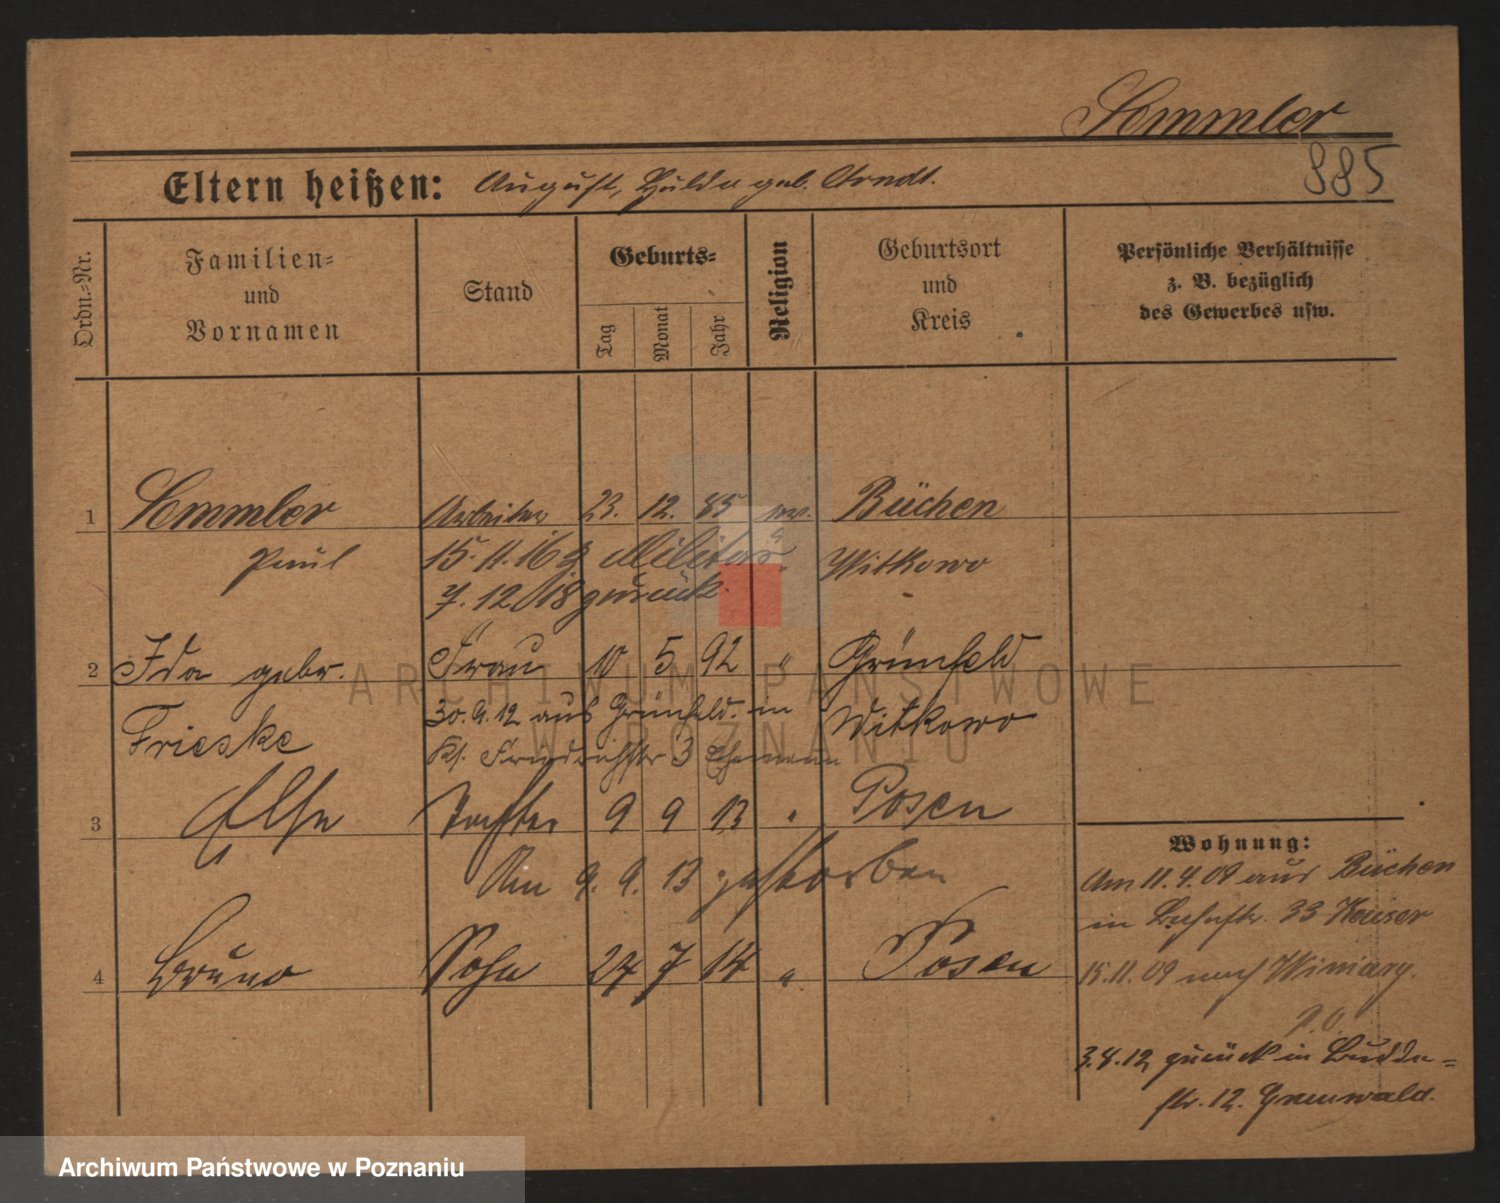 Semmler
885
Eltern heißen: August, Hulda geb. Arndt.
Ordn.-Nr.
Familien- und Vornamen
Stand
Geburts-
Tag Monat Jahr
Religion
Geburtsort und Kreis
Persönliche Verhältnisse
z. B. bezüglich
des Gewerbes usw.
1 Semmler Arbeiter 23. 12. 85 ev. Büchen
Paul 15.11.16 z. Militär. Witkowo
7.12.18 zurück.
2 Ida gebr. Frau 10 5 92 " Grünfeld
Frieske 30.9.12 aus Grünfeld. in Witkowo
Kl. Friedrichstr 3 Ehemann
3 Else Tochter 9 9 13 " Posen
Am 9. 9. 13 gestorben
4 Bruno Sohn 27 7 14 " Posen
Wohnung:
Am 11.4.09 aus Büchen
in 33 Kaiser
15.11.09 nach Winiary.
P.O.
3.4.12 zurück in Budde-
str. 12. Grunwald.
ARCHIWUM PAŃSTWOWE
W POZNANIU
Archiwum Państwowe w Poznaniu